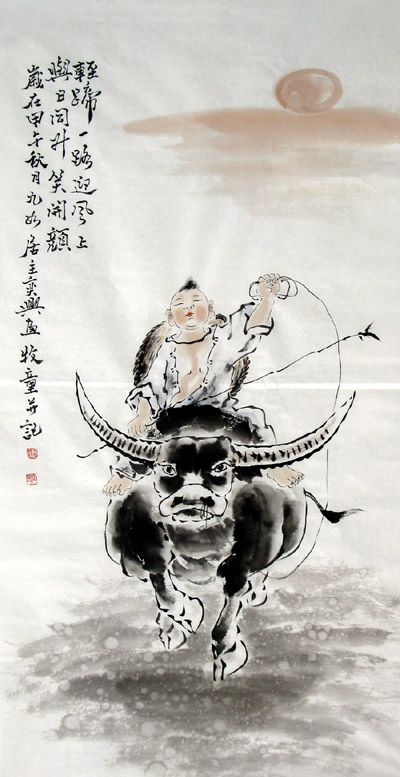 輕蹄一路迎风上
與日同升笑開顏
歲在甲午秋月九如居主奕興画牧童并記